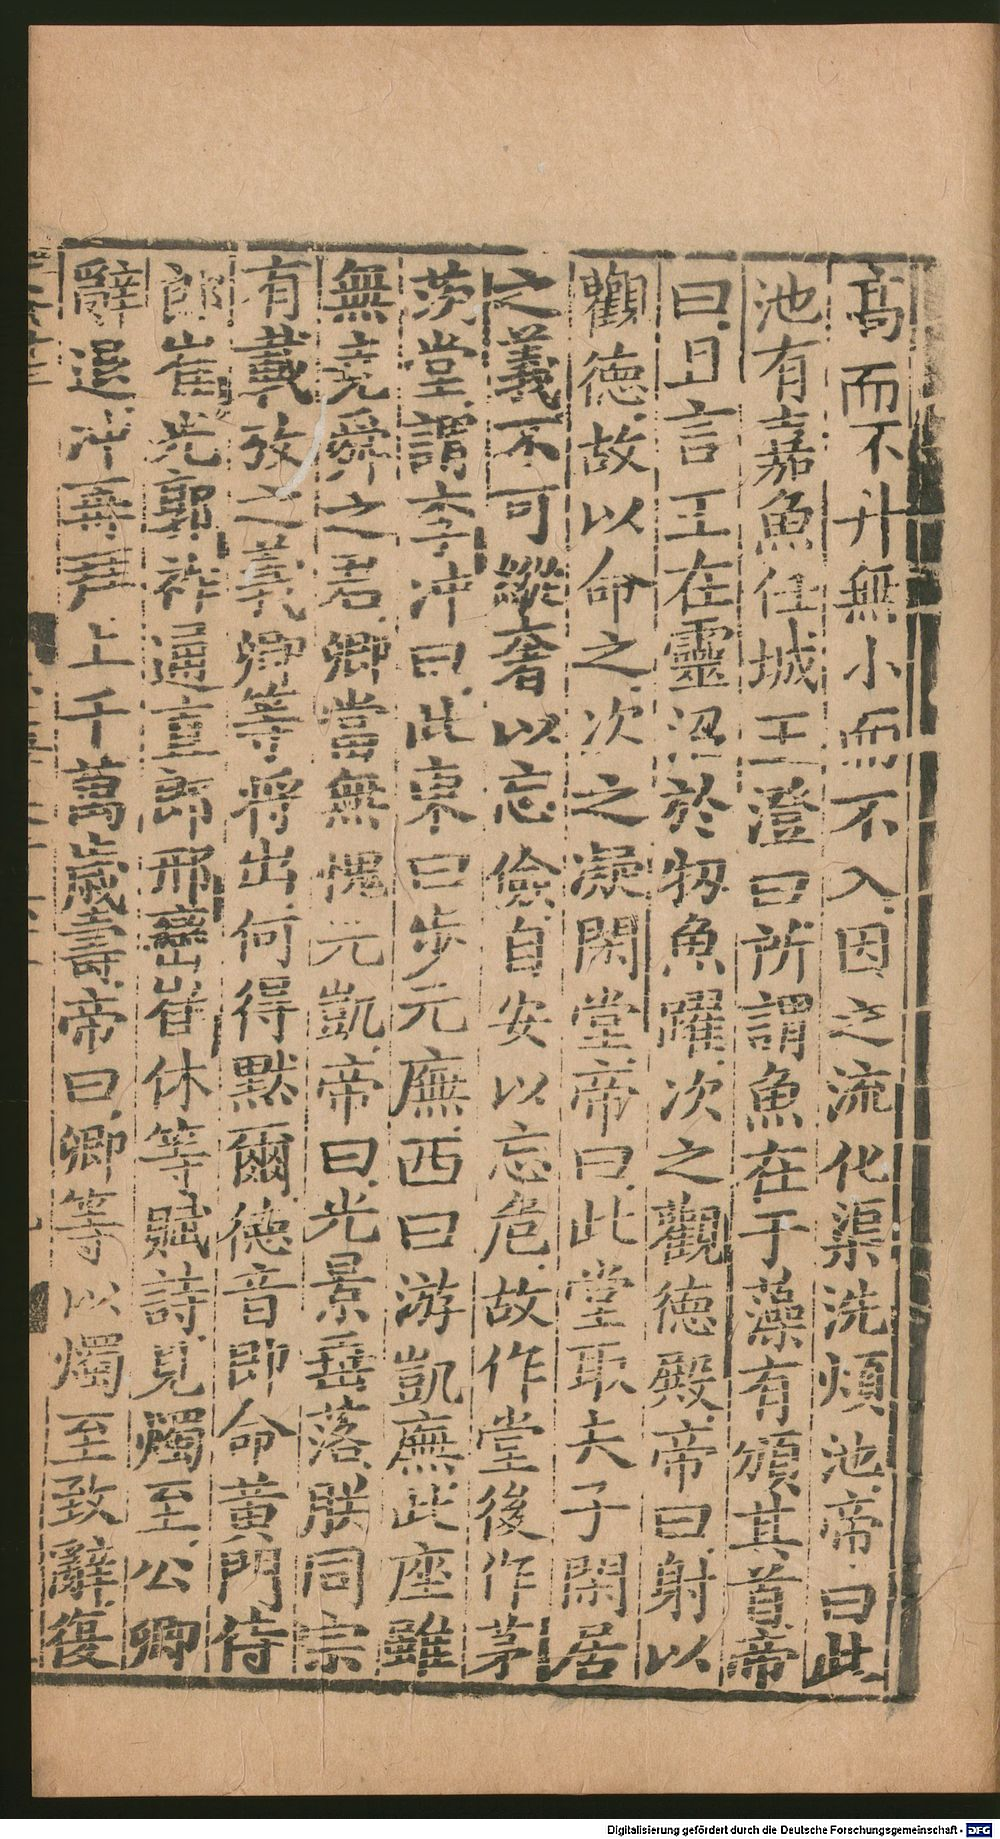 高而不升無小而不入因之流化渠洗煩池帝曰此
池有嘉魚任城王澄曰所謂魚在于藻有頒其首帝
曰且言王在靈沼於牣魚躍次之觀德殿帝曰射以
觀德故以命之次之凝閑堂帝曰此堂取夫子閑居
之義不可縱奢以忘儉自安以忘危故作堂後作茅
茨堂謂李沖曰此東曰步元廡西曰游凱廡此座雖
無堯舜之君卿當無愧元凱帝曰光景垂落朕同宗
有載考之義卿等將出何得黙爾德音即命黃門侍
郎崔光郭祚通直郎邢巒崔休等賦詩見燭至公卿
辭退沖再拜上千萬歲壽帝曰卿等以燭至致辭復
Digitalisierung gefördert durch die Deutsche Forschungsgemeinschaft - DFG